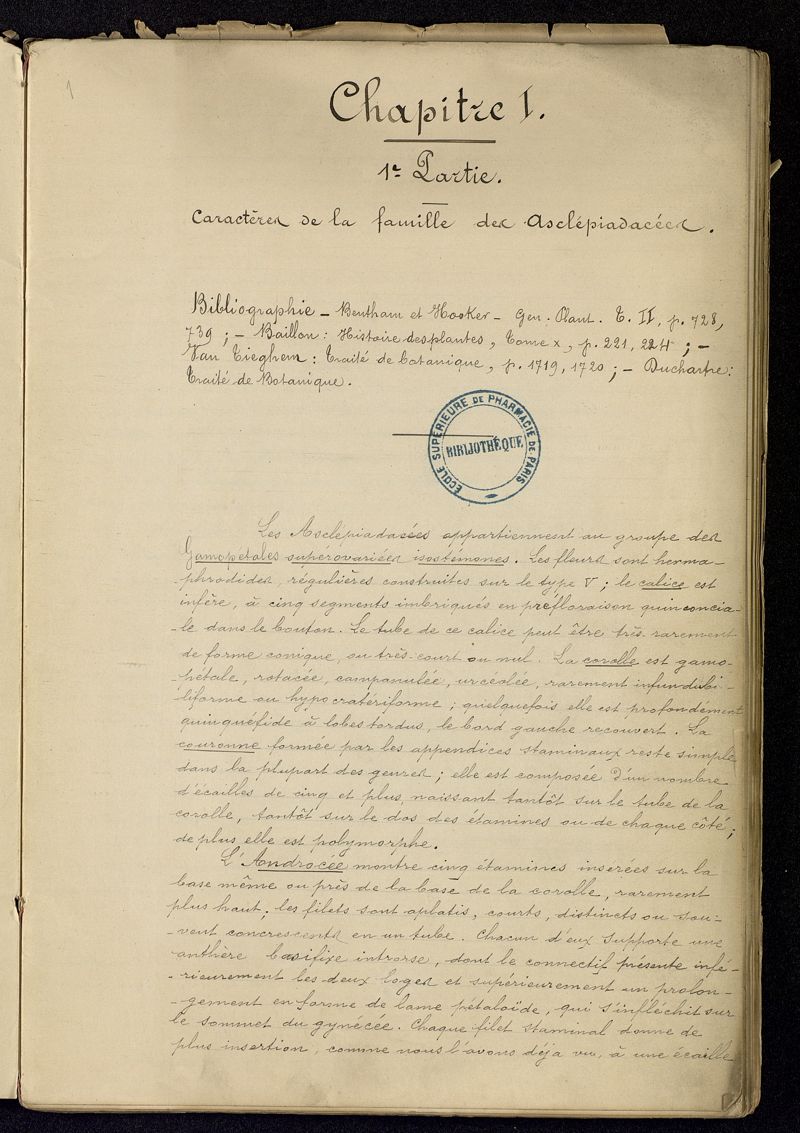 1
Chapitre I.
1re Partie.
Caractères de la famille des Asclépiadacées.
Bibliographie — Bentham et Hooker — Gen. Plant. T. II, p. 728,
739 ; — Baillon : Histoire des plantes, Tome X, p. 221, 224 ; —
Van Tieghem : Traité de botanique, p. 1719, 1720 ; — Duchartre :
Traité de Botanique.
ÉCOLE SUPÉRIEURE DE PHARMACIE DE PARIS
BIBLIOTHÈQUE
Les Asclépiadacées appartiennent au groupe des
Gamopétales supérovariées isostémones. Les fleurs sont herma-
phrodides, régulières construites sur le type V ; le calice est
infère, à cinq segments imbriqués en préfloraison quinconcia-
le dans le bouton. Le tube de ce calice peut être très rarement
de forme conique, ou très-court ou nul. La corolle est gamo-
pétale, rotacée, campanulée, urcéolée, rarement infundibi-
liforme ou hypocratériforme ; quelquefois elle est profondément
quinquéfide à lobes tordus, le bord gauche recouvert. La
couronne formée par les appendices staminaux reste simple
dans la plupart des genres ; elle est composée d'un nombre
d'écailles de cinq et plus, naissant tantôt sur le tube de la
corolle, tantôt sur le dos des étamines ou de chaque côté ;
de plus elle est polymorphe.
L'Androcée montre cinq étamines insérées sur la
base même ou près de la base de la corolle, rarement
plus haut. les filets sont aplatis, courts, distincts ou sou-
-vent concrescents en un tube. Chacun d'eux supporte une
anthère basifixe introrse, dont le connectif présente infé-
-rieurement les deux loges et supérieurement un prolon-
-gement en forme de lame pétaloïde, qui s'infléchit sur
le sommet du gynécée. Chaque filet staminal donne de
plus insertion, comme nous l'avons déjà vu, à une écaille